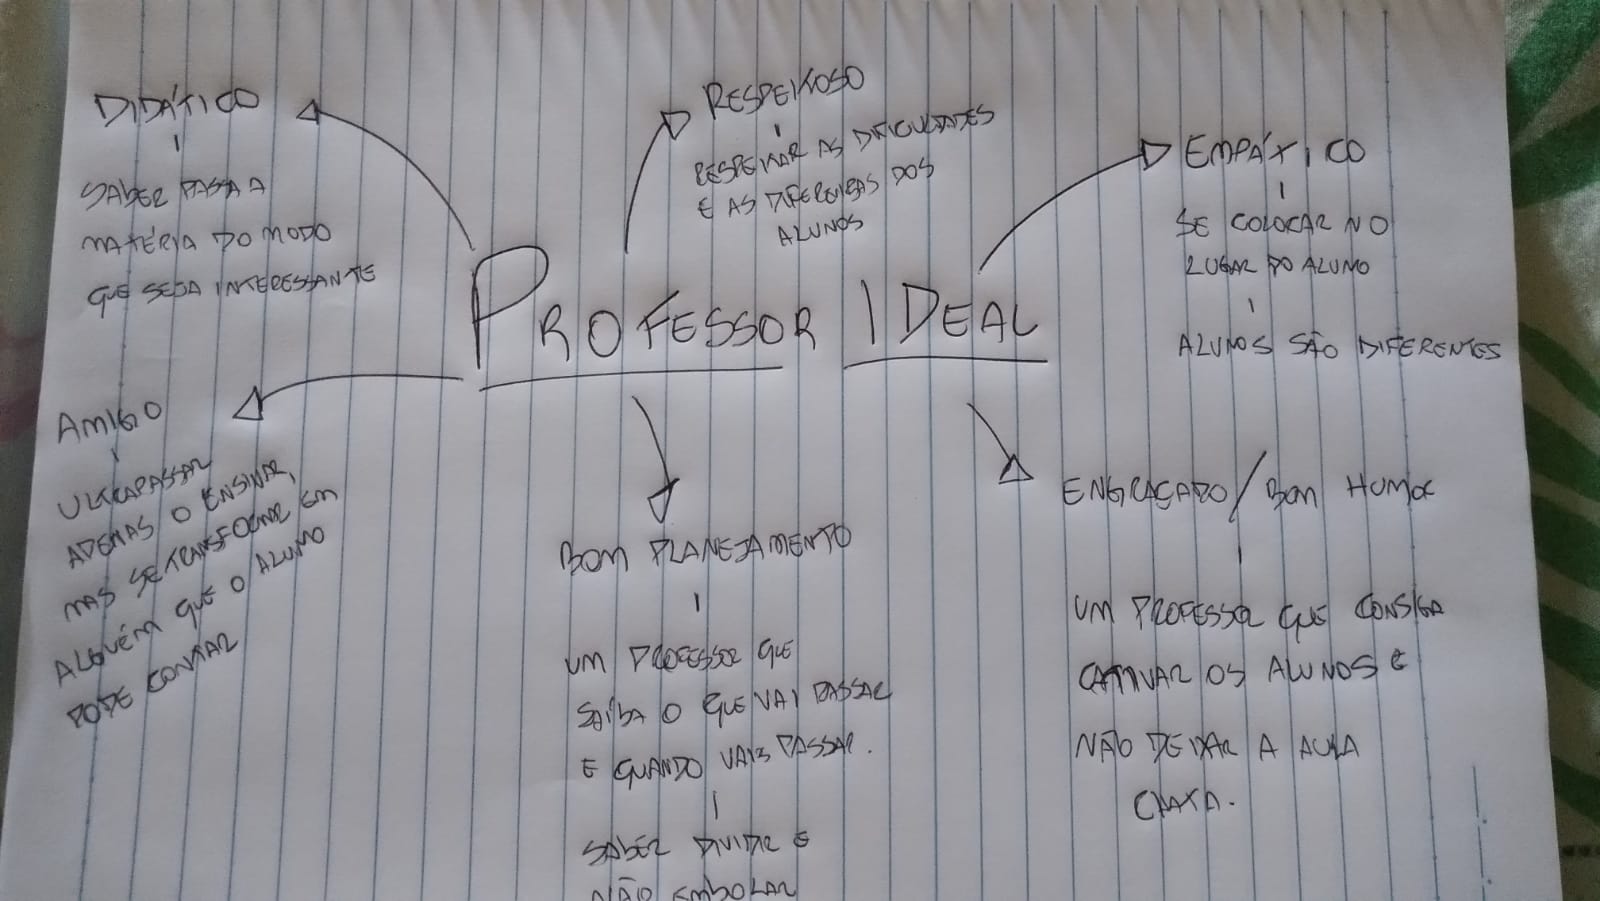 DIDÁTICO
SABER PASSA A
MATÉRIA DO MODO
QUE SEJA INTERESSANTE
RESPEITOSO
RESPEITAR AS DIFICULDADES
E AS DIFERENÇAS DOS
ALUNOS
EMPÁTICO
SE COLOCAR NO
LUGAR DO ALUNO
ALUNOS SÃO DIFERENTES
PROFESSOR IDEAL
AMIGO
ULTRAPASSAR
APENAS O ENSINAR,
MAS SE TRANSFORMAR EM
ALGUÉM QUE O ALUNO
PODE CONTAR
BOM PLANEJAMENTO
UM PROFESSOR QUE
SAIBA O QUE VAI PASSAR
E QUANDO VAIS PASSAR.
SABER DIVIDIR E
NÃO EMBOLAR
ENGRAÇADO/BOM HUMOR
UM PROFESSOR QUE CONSIGA
CATIVAR OS ALUNOS E
NÃO DEIXAR A AULA
CHATA.